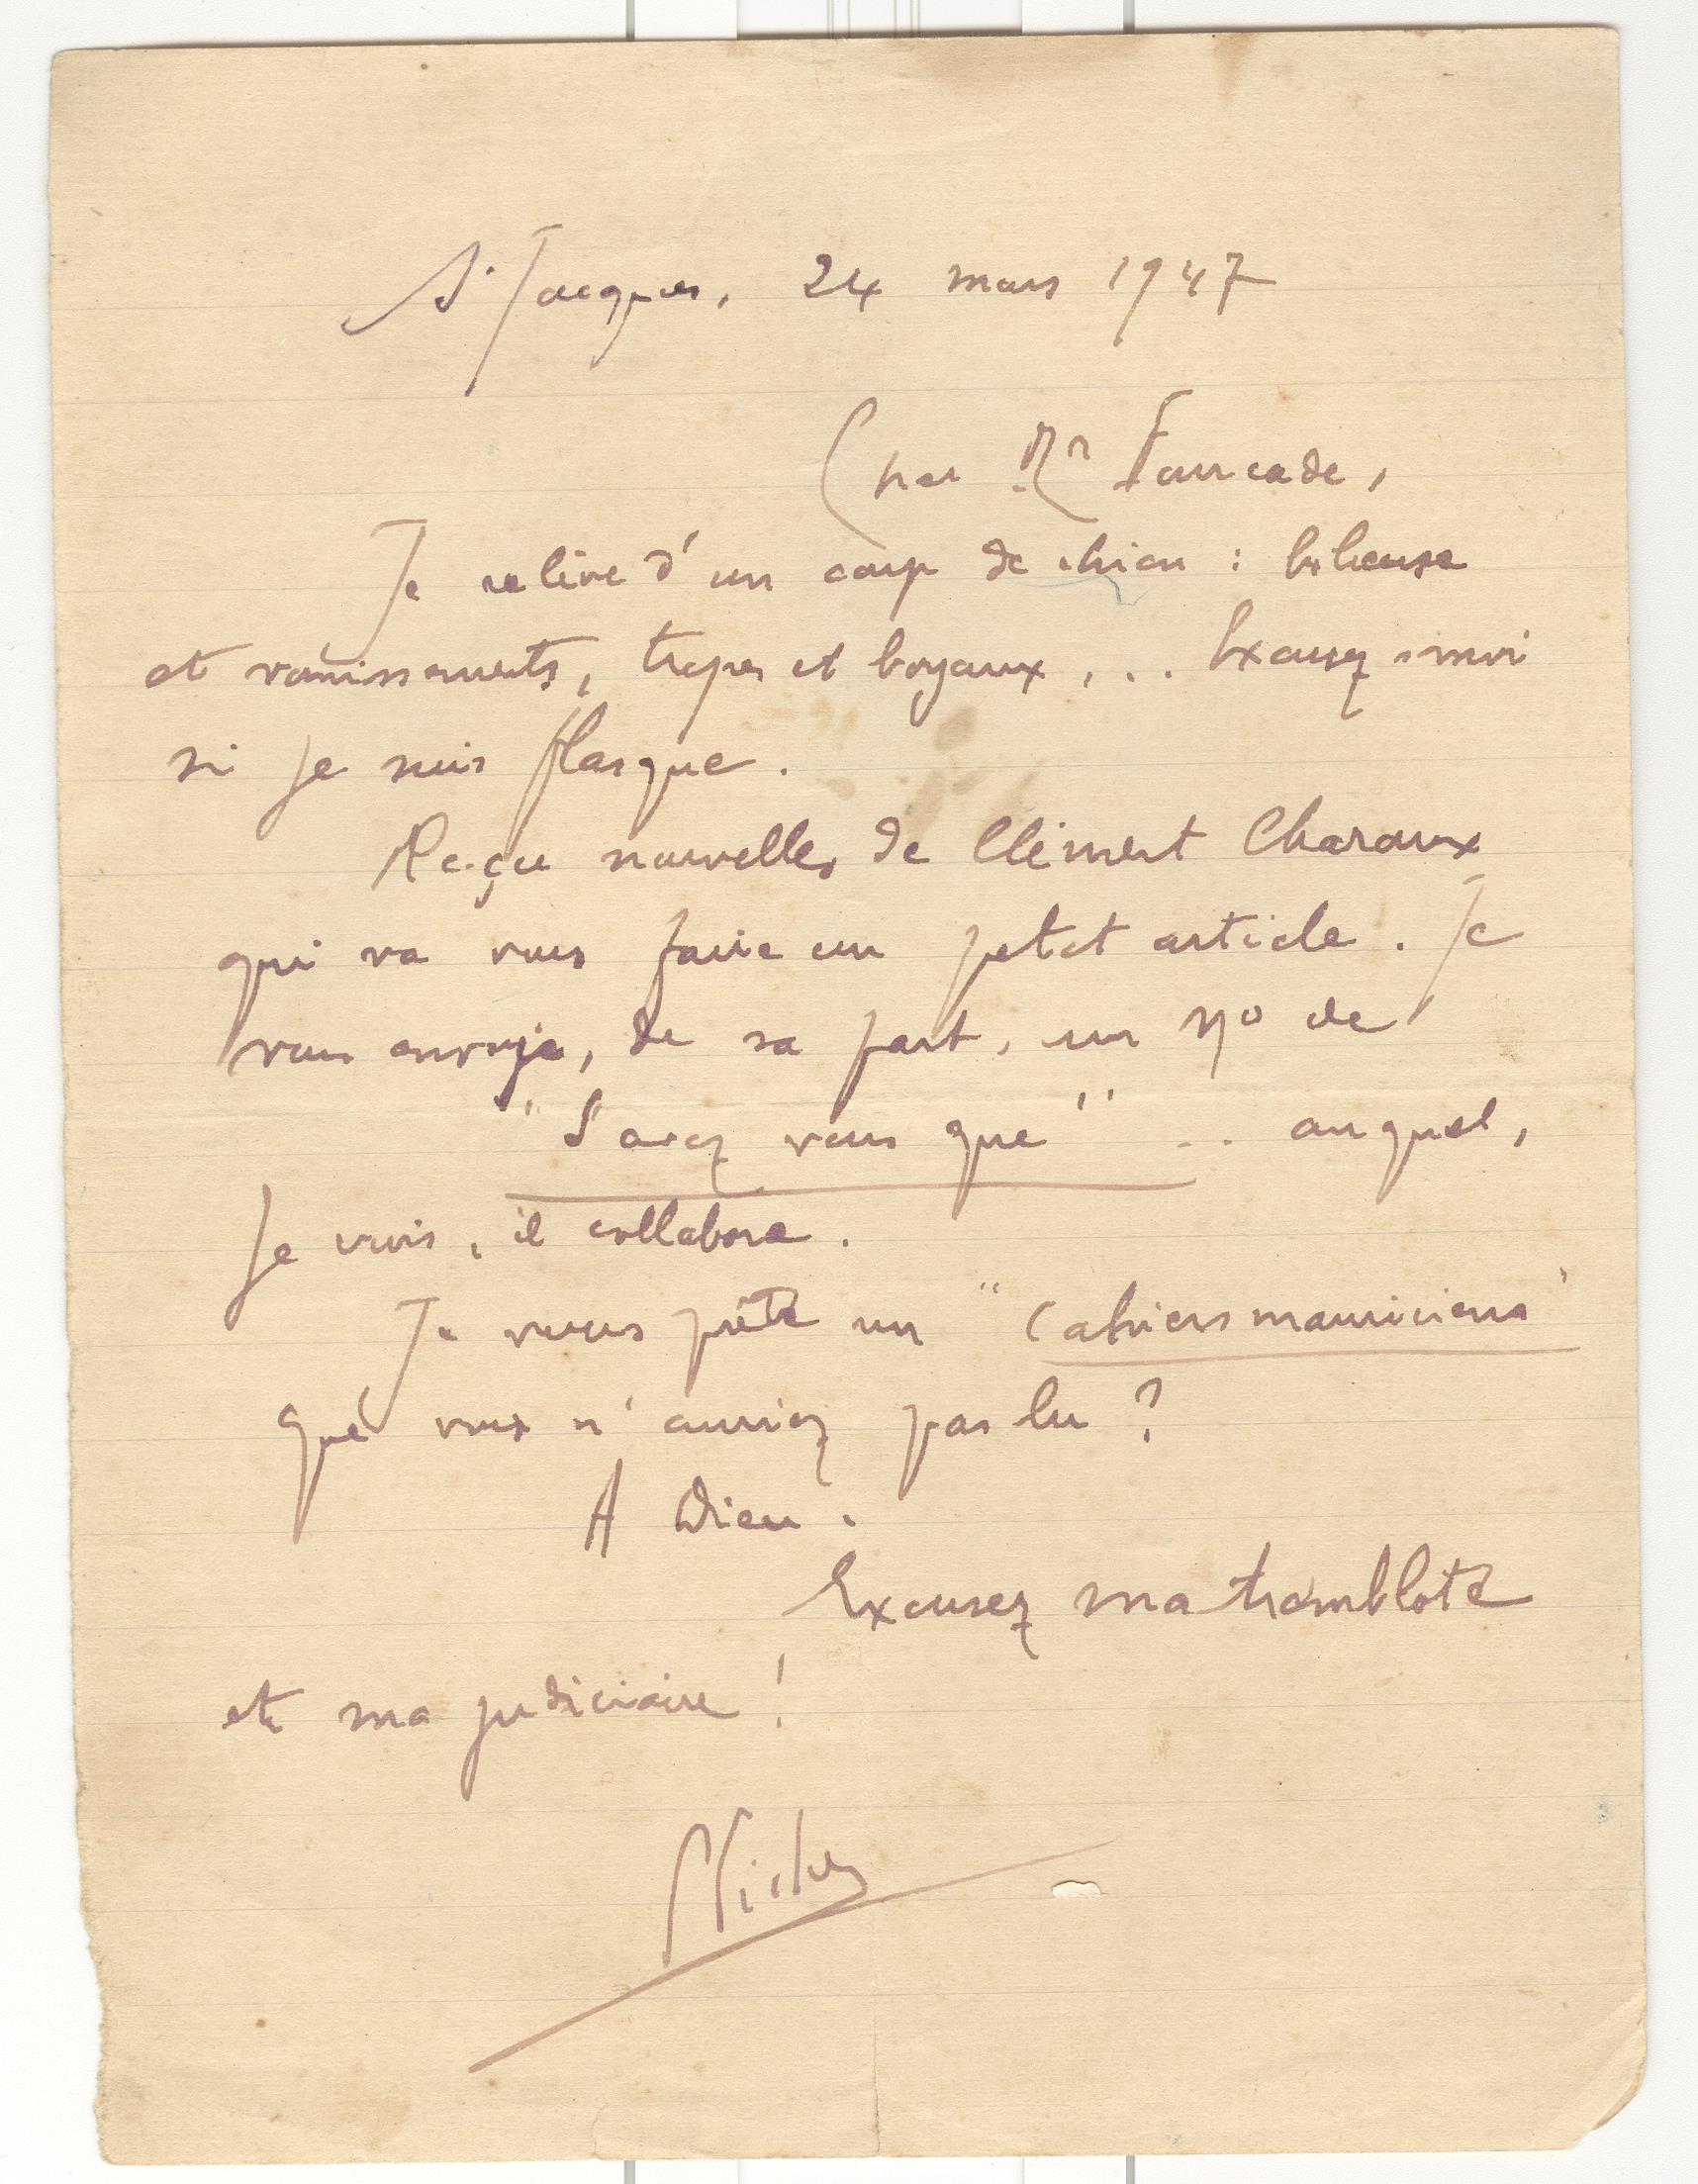 St Jacques, 24 mars 1947
Cher Mr Fourcade,
Je relève d'un coup de chien : bilieuse
et vomissements, tripes et boyaux, ... Excusez-moi
si je suis flasque.
Reçu nouvelles de Clément Charoux
qui va vous faire un petit article. Je
vous envoie, de sa part, un No de
"Savez vous que" .. auquel,
je vois, il collabore.
Je vous prête un "Cahiers mauriciens"
que vous n'auriez pas lu ?
A Dieu.
Excusez ma tremblote
et ma judiciaire !